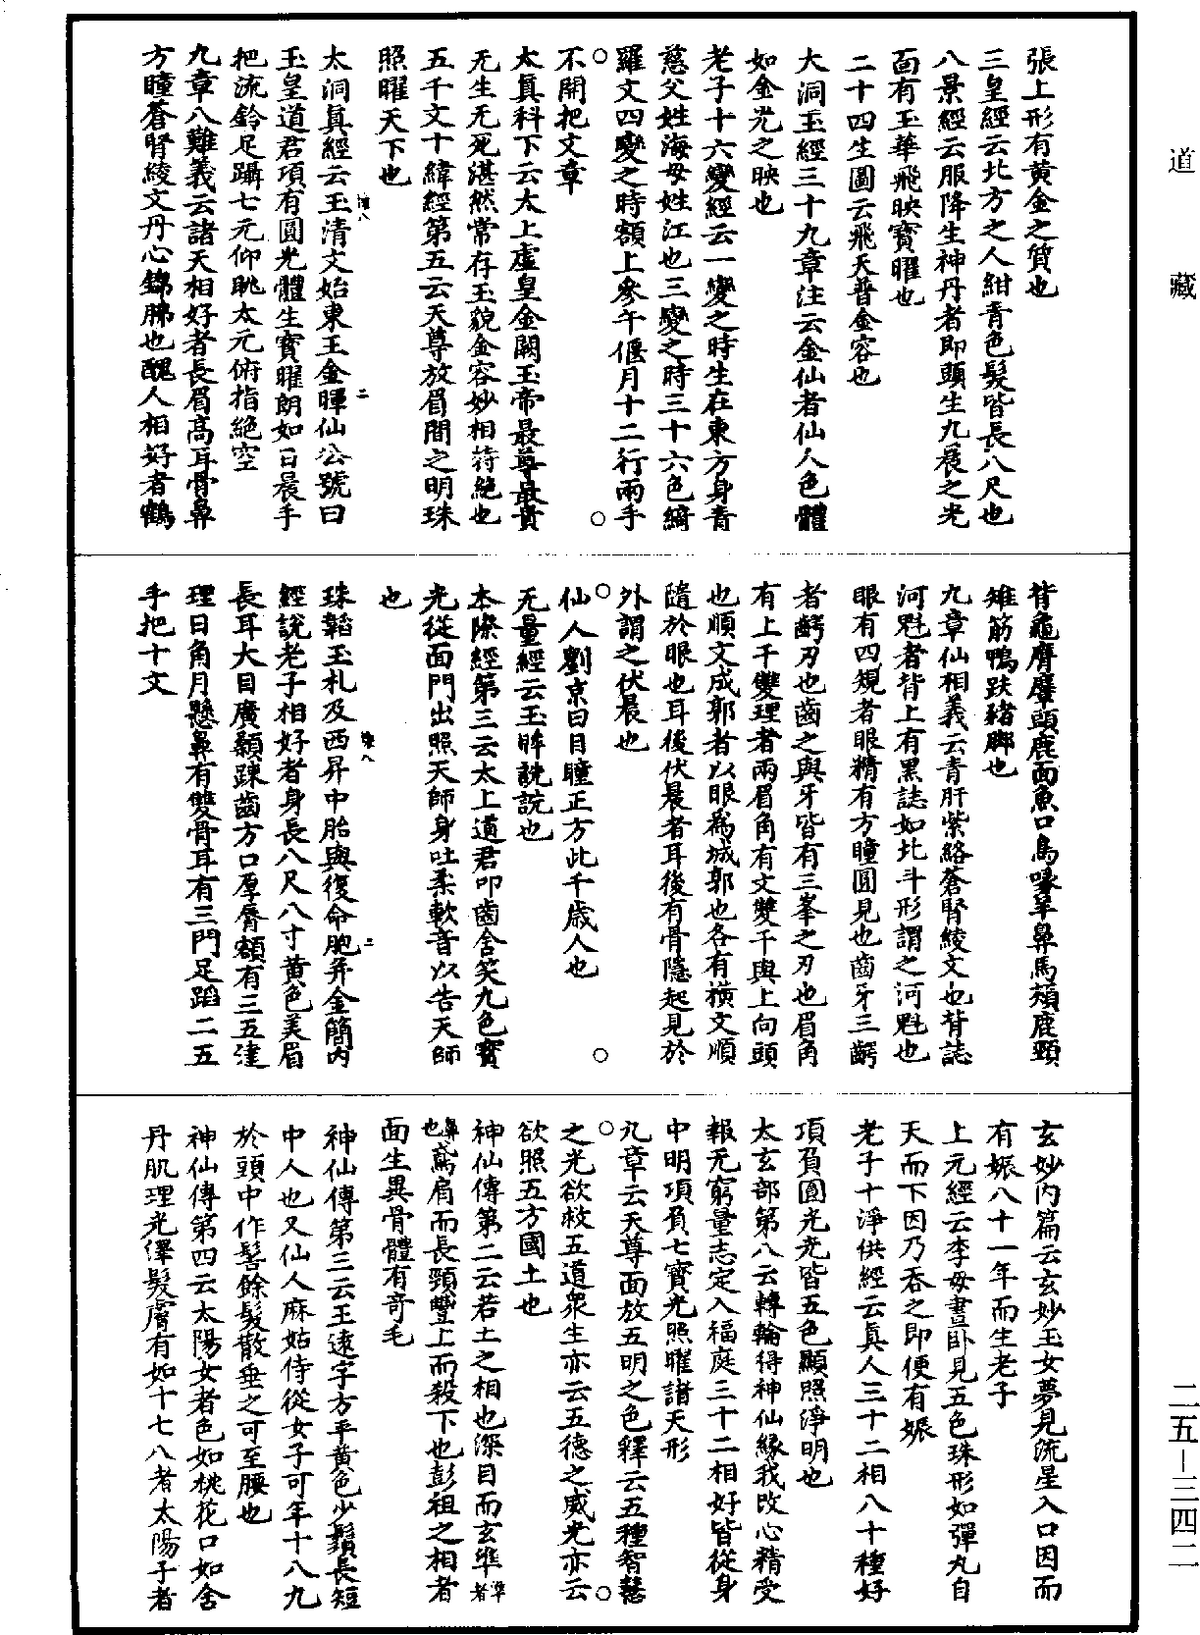 道藏
二五—三四二
張上形有黃金之質也
三皇經云北方之人紺青色髮皆長八尺也
八景經云服降生神丹者即頭生九晨之光
面有玉華飛映寶曜也
二十四生圖云飛天普金容也
大洞玉經三十九章注云金仙者仙人色體
如金光之映也
老子十六變經云一變之時生在東方身青
慈父姓海母姓江也三變之時三十六色綺
羅文四變之時額上參午偃月十二行兩手
不開把文章
太真科下云太上虛皇金闕玉帝最尊最貴
无生无死湛然常存玉貌金容妙相特絶也
五千文十緯經第五云天尊放眉間之明珠
照曜天下也
太洞真經云玉清文始東王金暉仙公號曰
玉皇道君項有圓光體生寶曜朗如日晨手
把流鈴足躡七元仰眺太元俯指絶空
九章八難義云諸天相好者長眉高耳骨鼻
方瞳蒼腎綾文丹心錦胏也醜人相好者鶴
背龜膺麞頭鹿面魚口鳥喙羊鼻馬頰鹿頸
雉筋鴨趺豬脚也
九章仙相義云青肝紫絡蒼腎綾文也背誌
河魁者背上有黑誌如北斗形謂之河魁也
眼有四規者眼精有方瞳圓見也齒牙三齶
者齶刃也齒之與牙皆有三峯之刃也眉角
有上千雙理者兩眉角有文雙千與上向頭
也順文成郭者以眼為城郭也各有橫文順
隨於眼也耳後伏晨者耳後有骨隱起見於
外謂之伏晨也
仙人劉京曰目瞳正方此千歲人也
无量經云玉眸説説也
本際經第三云太上道君叩齒含笑九色寶
光從面門出照天師身吐柔軟音以告天師
也
珠韜玉札及西昇中胎與復命胞并金簡内
經説老子相好者身長八尺八寸黃色美眉
長耳大目廣顙踈齒方口厚脣額有三五達
理日角月懸鼻有雙骨耳有三門足蹈二五
手把十文
玄妙内篇云玄妙玉女夢見流星入口因而
有娠八十一年而生老子
上元經云李母晝卧見五色珠形如彈丸自
天而下因乃吞之即便有娠
老子十淨供經云真人三十二相八十種好
項負圓光光皆五色顯照淨明也
太玄部第八云轉輪得神仙緣我改心精受
報无窮量志定入福庭三十二相好皆從身
中明項負七寶光照曜諸天形
九章云天尊面放五明之色釋云五種智慧
之光欲救五道衆生亦云五德之威光亦云
欲照五方國土也
神仙傳第二云若士之相也深目而玄準準者
鼻也鳶肩而長頸豐上而殺下也彭祖之相者
面生異骨體有奇毛
神仙傳第三云王遠字方平黃色少鬚長短
中人也又仙人麻姑侍從女子可年十八九
於頭中作髻餘髮散垂之可至腰也
神仙傳第四云太陽女者色如桃花口如含
丹肌理光澤髮膚有如十七八者太陽子者